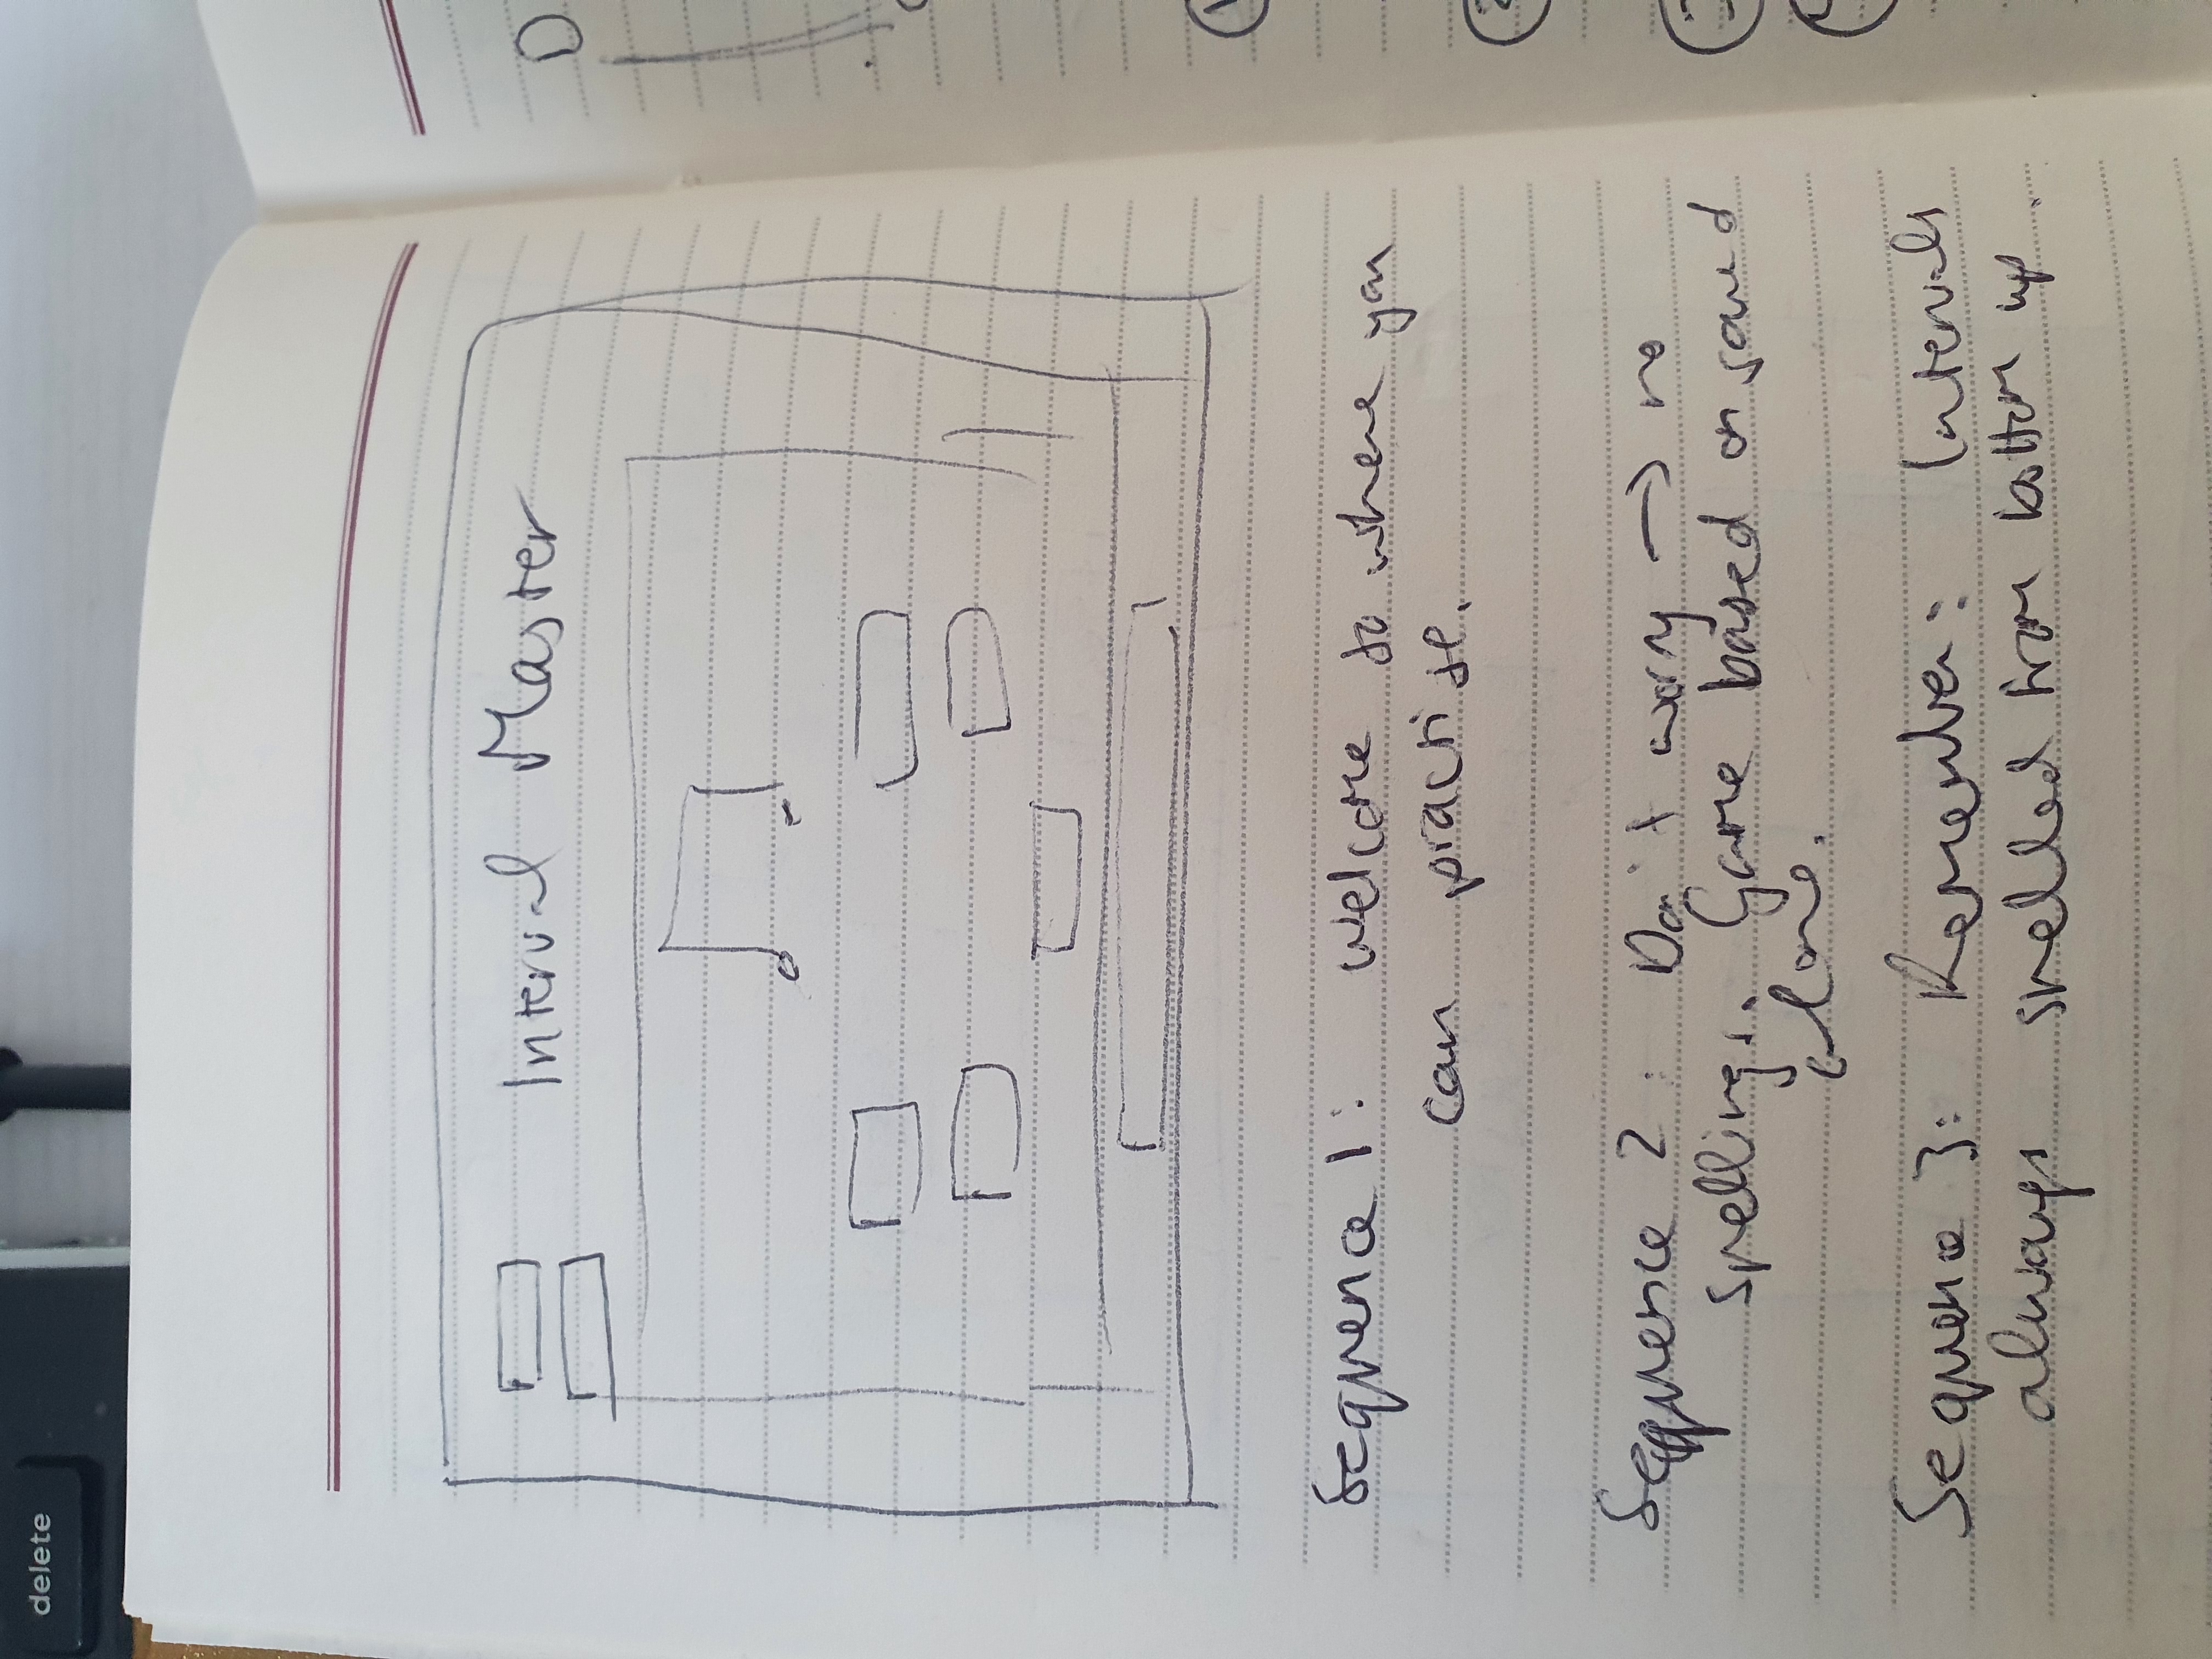 delete
Interval Master
D
Sequence 1: Welcome to where you
can practise.
Sequence 2: Don't worry → no
spellings. Game based on sound
alone.
Sequence 3: Remember: Intervals
always spelled from bottom up.